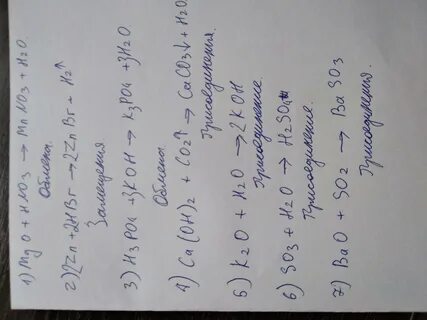 1) MgO + HNO3 → MnNO3 + H2O.
Обмена.
2) 2Zn + 2HBr → 2ZnBr + H2↑
Замещения
3) H3PO4 + 3KOH → K3PO4 + 3H2O
Обмена.
4) Ca(OH)2 + CO2↑ → CaCO3↓ + H2O.
Присоединения.
5) K2O + H2O → 2KOH
Присоединение.
6) SO3 + H2O → H2SO4
Присоединение.
7) BaO + SO2 → BaSO3
Присоединения.